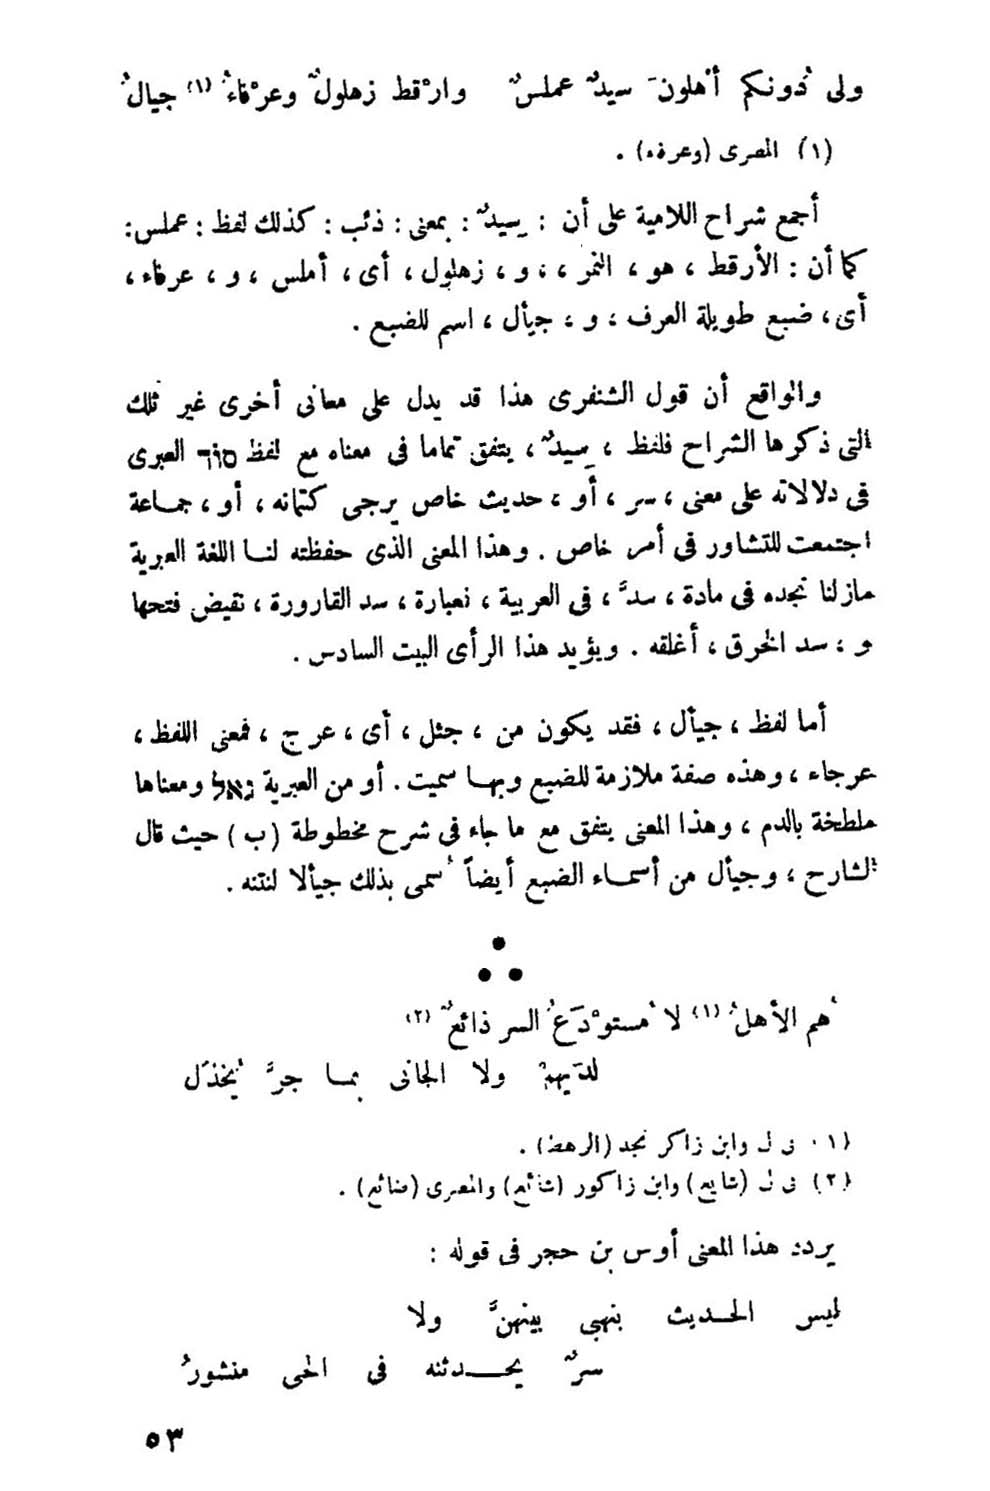 ولى دُونكم أهْلون َ سيدٌ عملسٌ وارْقط زهلولٌ وعرْفاءُ (١) جيالُ
(١) المصرى (وعرفه) .
أجمع شراح اللامية على أن : سِيدٌ : بمعنى : ذئب : كذلك لفظ : عملس :
كما أن : الأرقط ، هو ، النمر ، ، و ، زهلول ، أى ، أملس ، و ، عرفاء ،
أى ، ضبع طويلة العرف ، و ، جيأل ، اسم للضبع .
والواقع أن قول الشنفرى هذا قد يدل على معانى أخرى غير تلك
التى ذكرها الشراح فلفظ ، سِيدٌ ، يتفق تماما فى معناه مع لفظ סוד العبرى
فى دلالاته على معنى ، سر ، أو ، حديث خاص يرجى كتمانه ، أو ، جماعة
اجتمعت للتشاور فى أمر خاص . وهذا المعنى الذى حفظته لنا اللغة العبرية
مازلنا نجده فى مادة ، سدَّ ، فى العربية ، نعبارة ، سد القارورة ، نقيض فتحها
و ، سد الخرق ، أغلقه . ويؤيد هذا الرأى البيت السادس .
أما لفظ ، جيأل ، فقد يكون من ، جئل ، أى ، عرج ، فمعنى اللفظ ،
عرجاء ، وهذه صفة ملازمة للضبع وبها سميت . أو من العبرية גאל ومعناها
ملطخة بالدم ، وهذا المعنى يتفق مع ما جاء فى شرح مخطوطة (ب) حيث قال
الشارح ، وجيأل من أسماء الضبع أيضاً سُمى بذلك جيألا لنتنه .
هُم الأهلُ (١) لا مُستوْدَعُ السر ذائعٌ (٢)
لدَيهِمْ ولا الجانى بما جرَّ يُخذَل
(١٠ فى ل وابن زاكر نجد (الرهط) .
(٢) فى ل (شايع) وابن زاكور (شائع) والمصرى (ضائع) .
يردد هذا المعنى أوس بن حجر فى قوله :
ليس الحديث بنهبى بينهنَّ ولا
سرٌ يحدثنه فى الحى منشورُ
٥٣